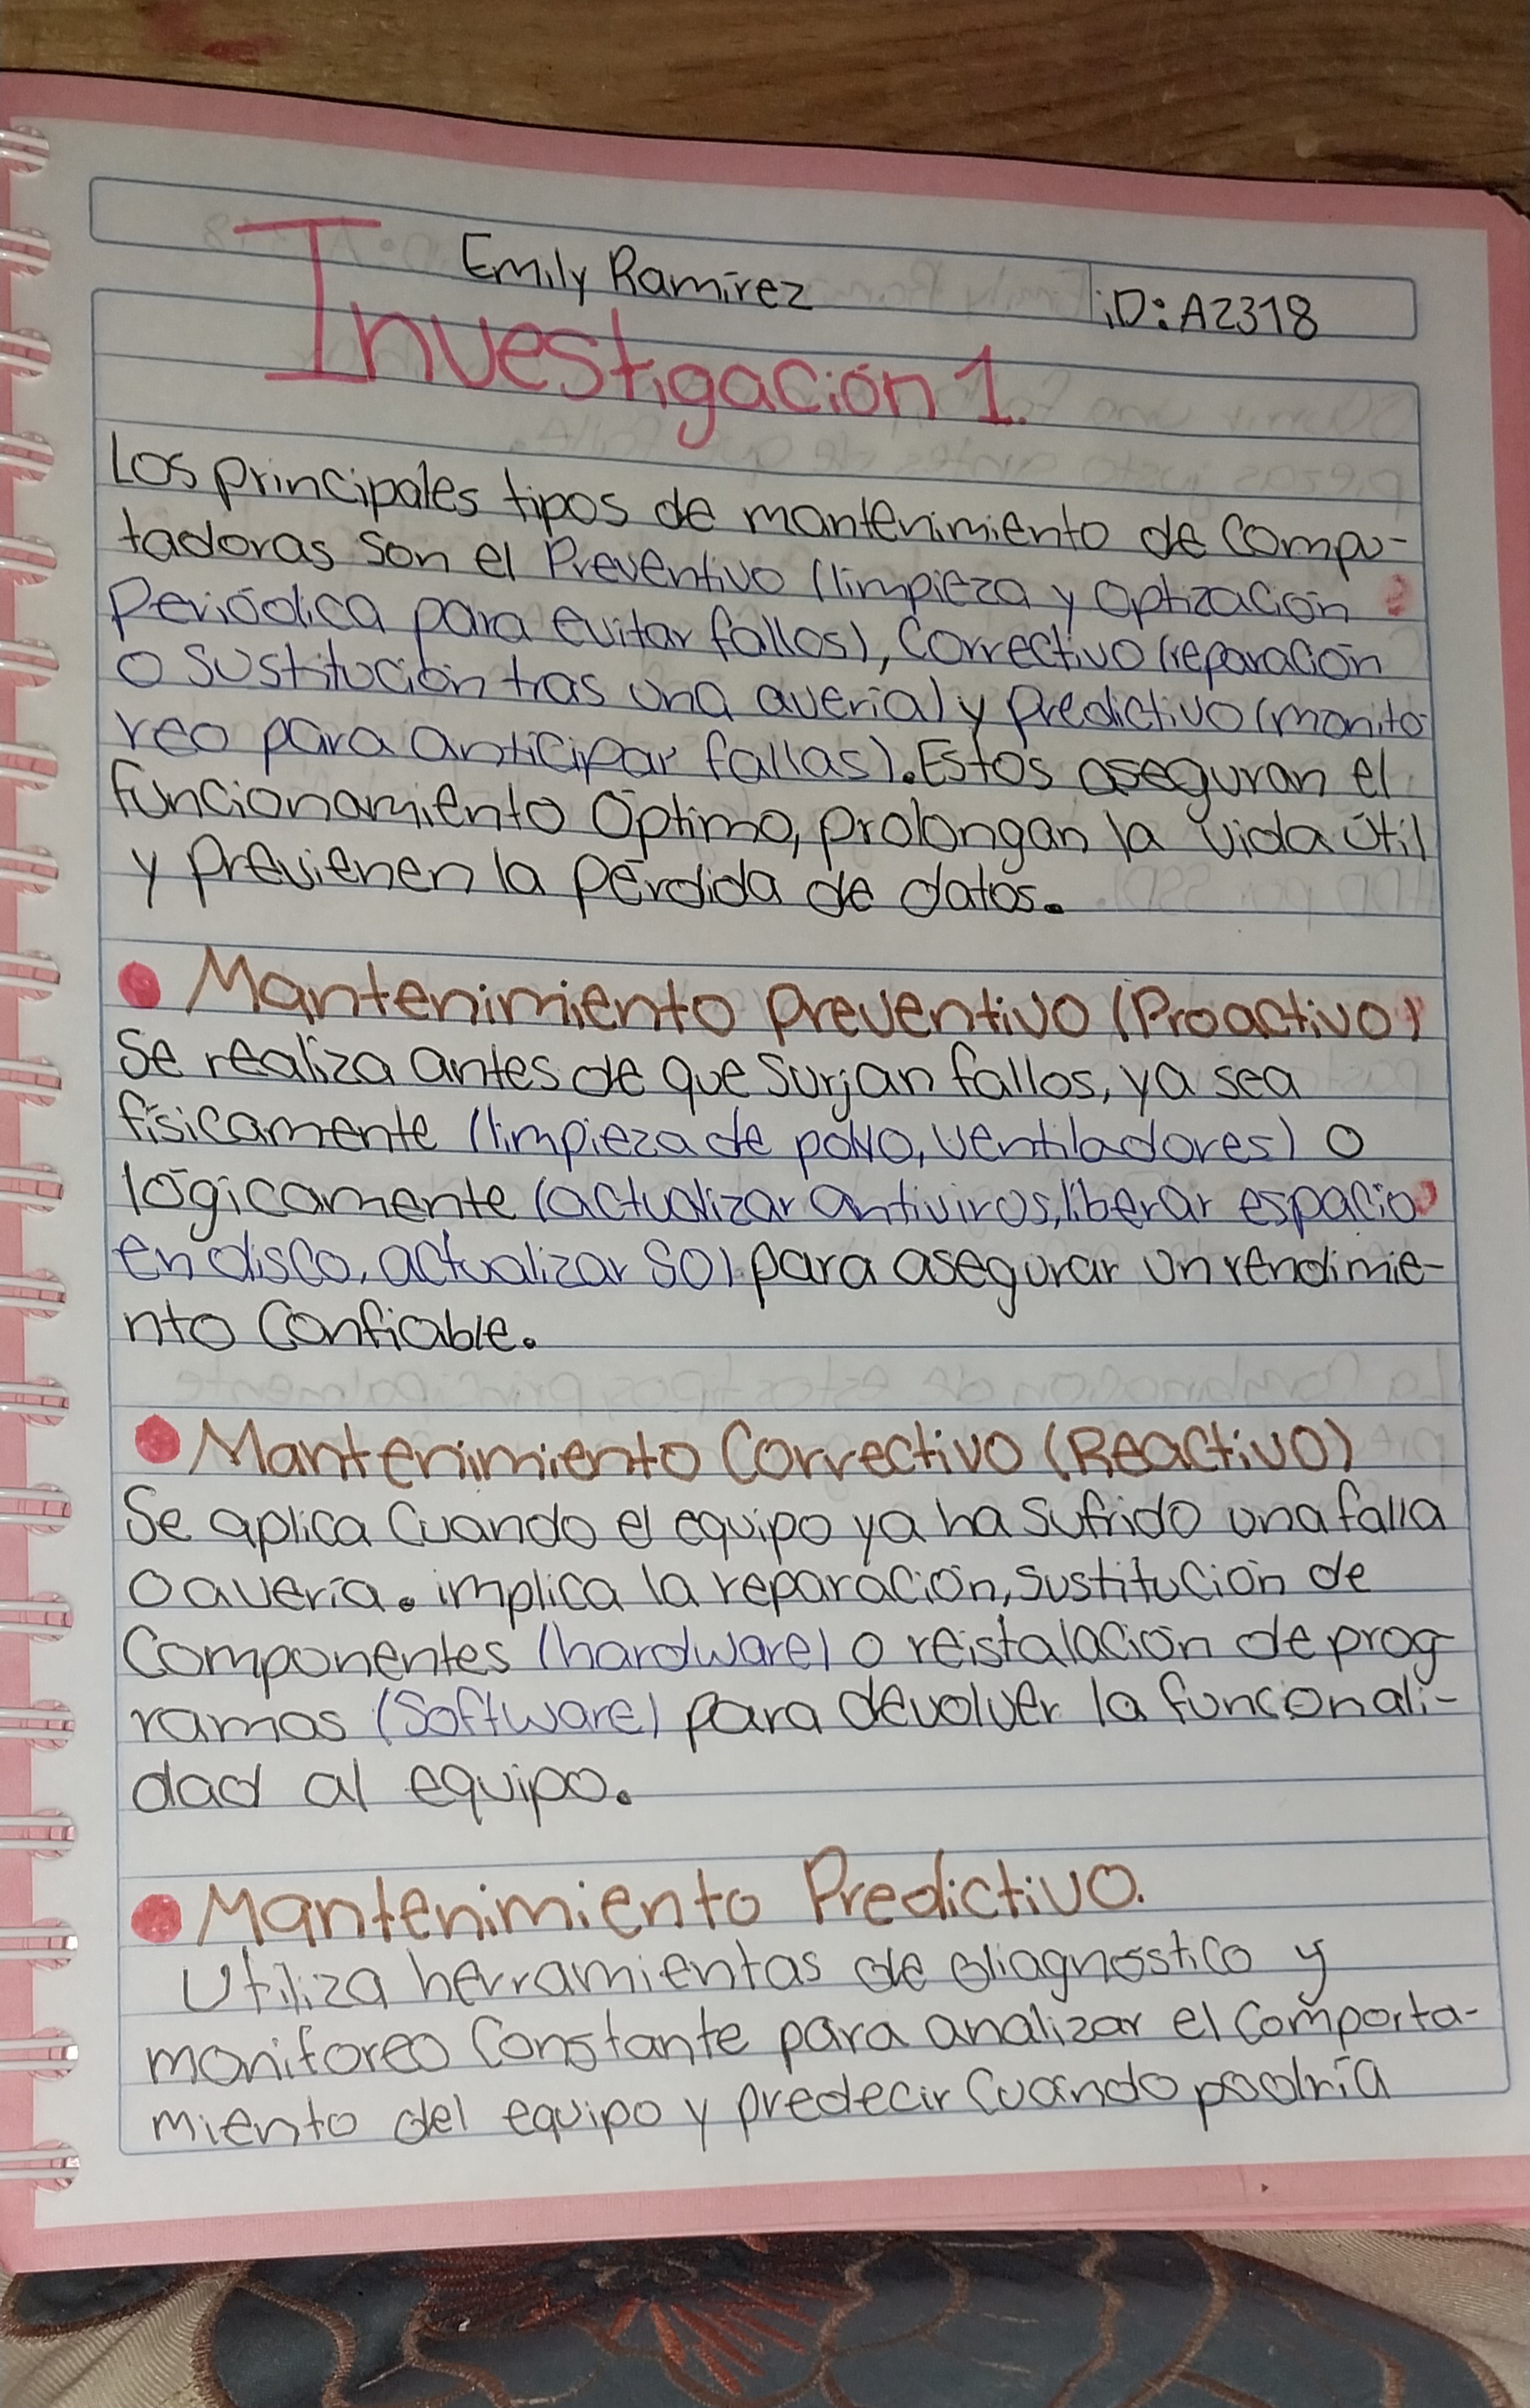 Emily Ramírez
iD: A2318
Investigación 1.
Los principales tipos de mantenimiento de compu-
tadoras son el Preventivo (limpieza y Optización
Periódica para evitar fallos), Correctivo (reparación
o sustitución tras una avería) y predictivo (monito-
reo para anticipar fallas). Estos aseguran el
funcionamiento Óptimo, prolongan la vida útil
y previenen la pérdida de datos.
● Mantenimiento preventivo (Proactivo)
Se realiza antes de que surjan fallos, ya sea
físicamente (limpieza de polvo, ventiladores) o
lógicamente (actualizar antivirus, liberar espacio
en disco, actualizar SO) para asegurar un rendimie-
nto confiable.
● Mantenimiento Correctivo (Reactivo)
Se aplica cuando el equipo ya ha sufrido una falla
o avería. implica la reparación, sustitución de
Componentes (hardware) o reistalación de prog-
ramas (Software) para devolver la funcionali-
dad al equipo.
● Mantenimiento Predictivo.
Utiliza herramientas de diagnóstico y
monitoreo constante para analizar el comporta-
miento del equipo y predecir cuándo podría